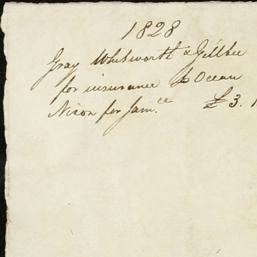 1828
Gray Whitworth & Gillbee
for insurance p Ocean
Nixon for Jam.ce £3.1